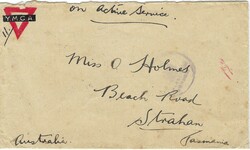 on Active Service.
YMCA
Miss O Holmes
Beach Road
Strahan
Australie.
Tasmania